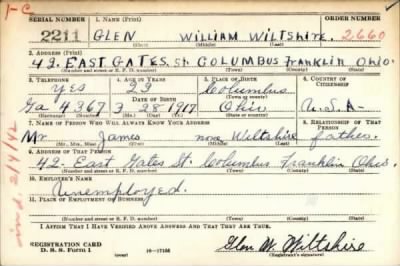 1-C
SERIAL NUMBER 1. NAME (Print) ORDER NUMBER
2211 GLEN WILLIAM WILTSHIRE 2660
(First) (Middle) (Last)
2. ADDRESS (Print)
42. EAST GATES. St. COLUMBUS Franklin Ohio.
(Number and street or R. F. D. number) (Town) (County) (State)
3. TELEPHONE 4. AGE IN YEARS 5. PLACE OF BIRTH 6. COUNTRY OF CITIZENSHIP
Yes 23 Columbus
(Town or county)
Ga 4367 3 28 1917 Ohio U.S.A.
(Exchange) (Number) (Mo.) (Day) (Yr.) (State or country)
7. NAME OF PERSON WHO WILL ALWAYS KNOW YOUR ADDRESS 8. RELATIONSHIP OF THAT PERSON
Mr James none Wiltshire father.
(Mr., Mrs., Miss) (First) (Middle) (Last)
9. ADDRESS OF THAT PERSON
42. East Gates St. Columbus Franklin Ohio.
(Number and street or R. F. D. number) (Town) (County) (State)
10. EMPLOYER'S NAME
Unemployed.
11. PLACE OF EMPLOYMENT OR BUSINESS
(Number and street or R. F. D. number) (Town) (County) (State)
I AFFIRM THAT I HAVE VERIFIED ABOVE ANSWERS AND THAT THEY ARE TRUE.
REGISTRATION CARD
D. S. S. Form 1 16-17105 Glen W. Wiltshire
(Registrant's signature)
ind. 2/4/42